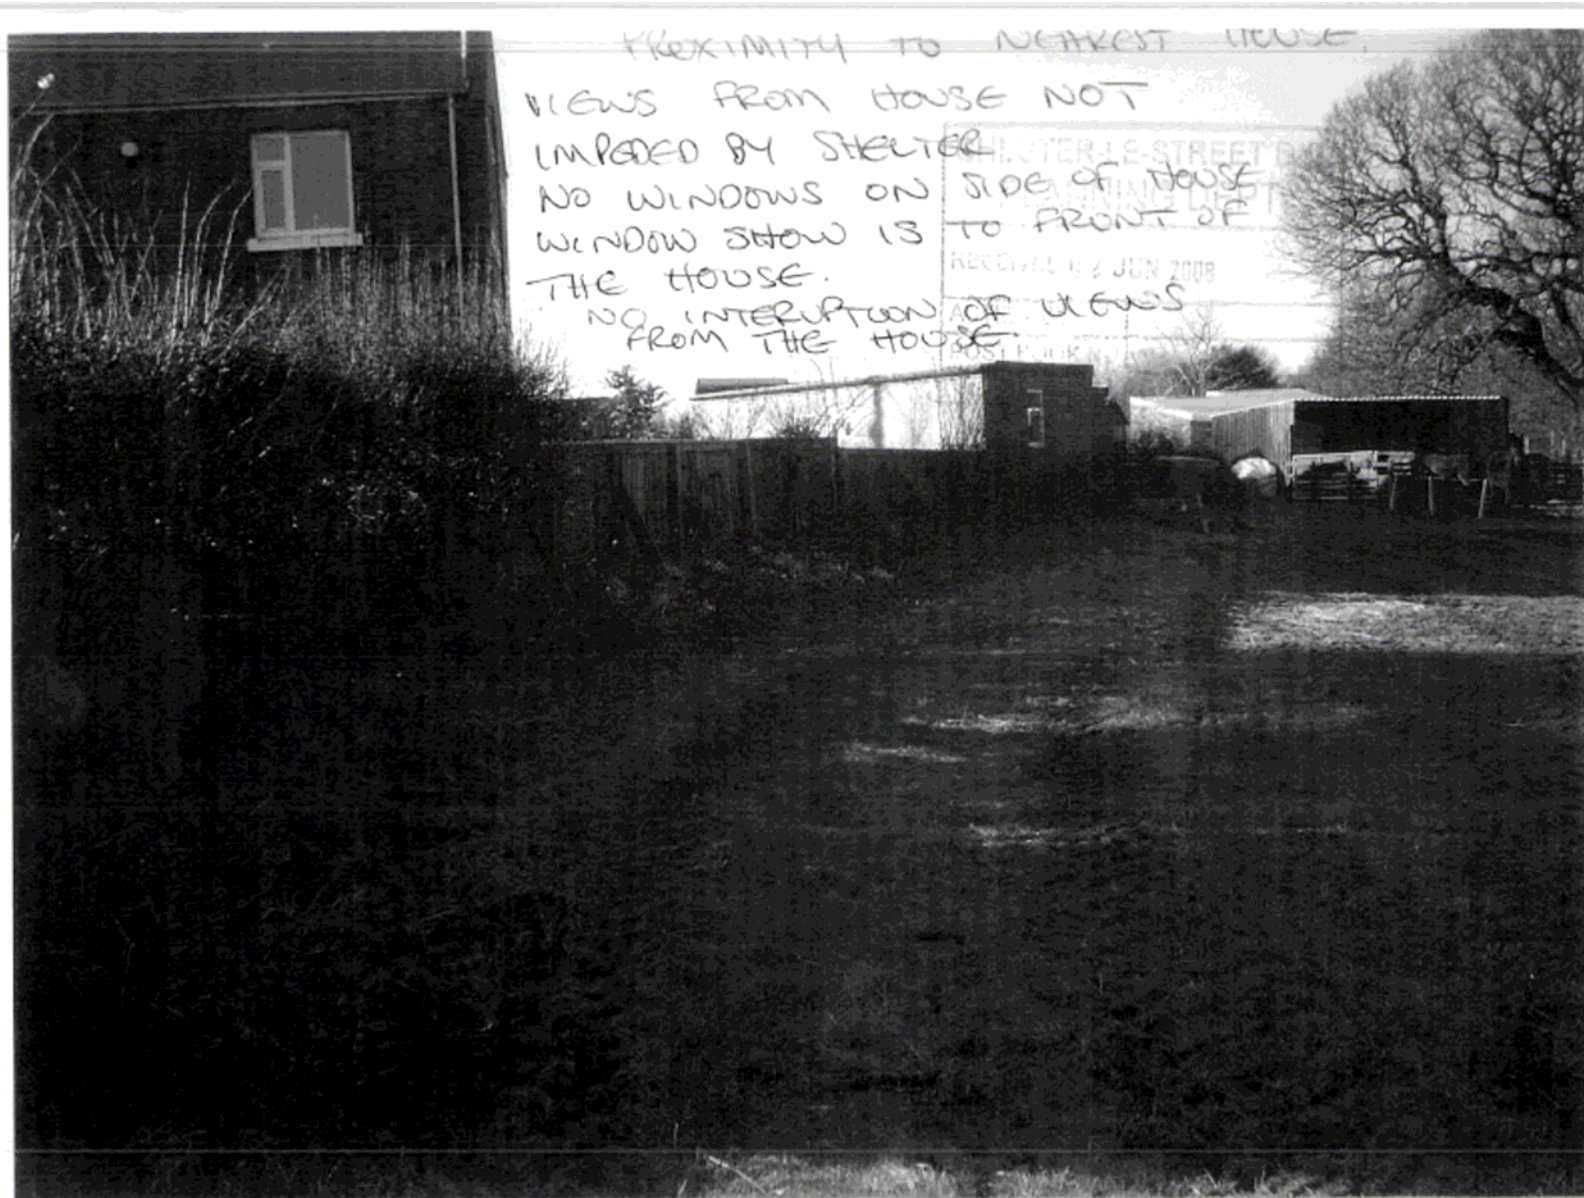 PROXIMITY TO NEAREST HOUSE.
VIEWS FROM HOUSE NOT
IMPEDED BY SHELTER
NO WINDOWS ON SIDE OF HOUSE
WINDOW SHOW IS TO FRONT OF
THE HOUSE.
NO INTERUPTION OF VIEWS
FROM THE HOUSE.
TER-LE-STREET
PLANNING DEPT
RECEIVED 02 JUN 2008